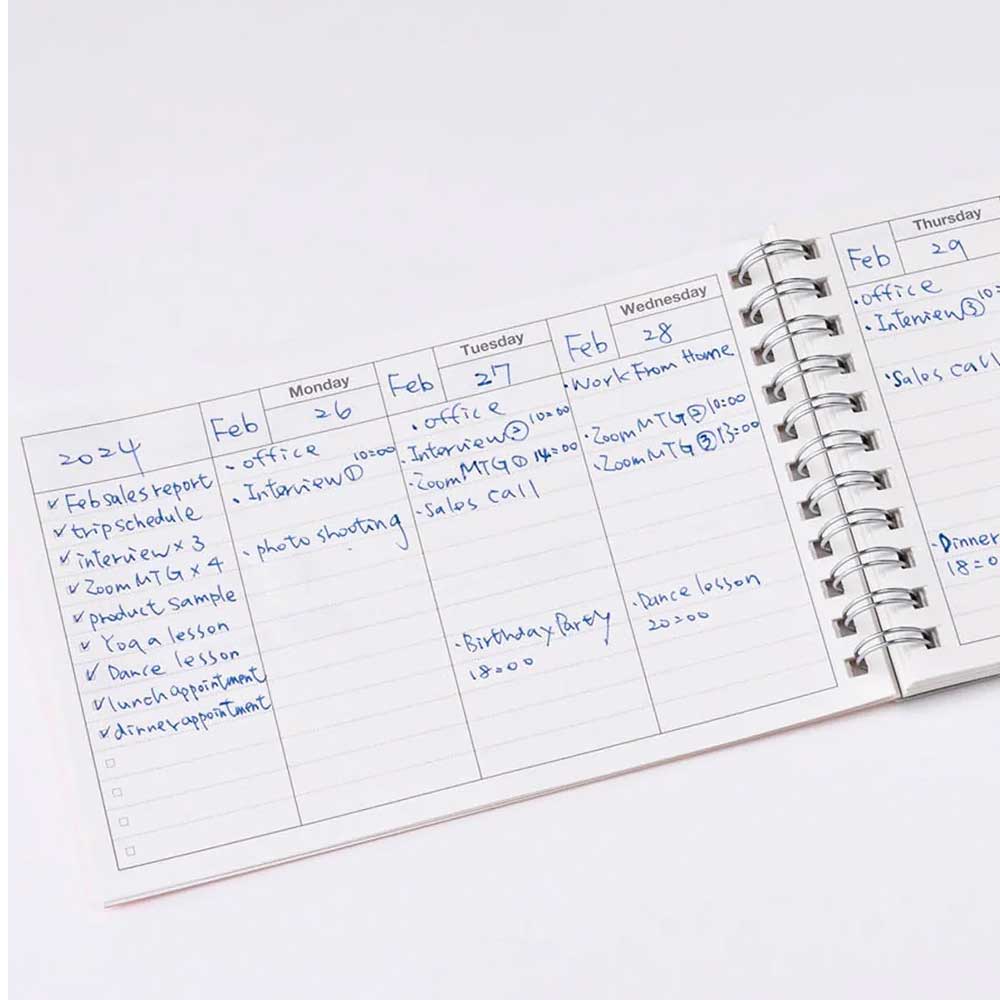 2024
✓ Feb sales report
✓ trip schedule
✓ interview × 3
✓ Zoom MTG × 4
✓ product sample
✓ Yoga lesson
✓ Dance lesson
✓ lunch appointment
✓ dinner appointment
Feb
Monday
26
・office
・Interview① 10:00
・photo shooting
Feb
Tuesday
27
・office
・Interview② 10:00
・Zoom MTG① 14:00
・Sales call
・Birthday Party
18:00
Feb
Wednesday
28
・Work From Home
・Zoom MTG② 10:00
・Zoom MTG③ 13:00
・Dance lesson
20:00
Feb
Thursday
29
・office
・Interview③ 10:
・Sales call
・Dinner
18:0